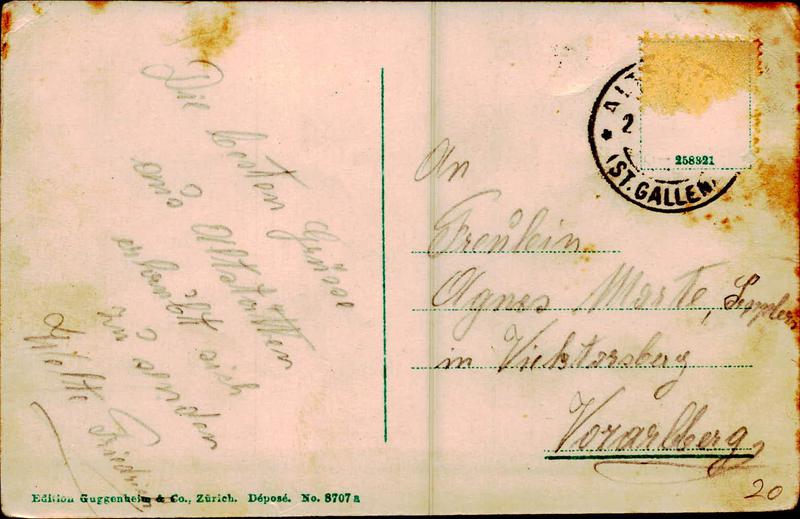 Die besten Grüsse
aus Altstätten
erlaubt sich
zu senden
Welte Friedrich
An
Freulein
Agnes Marte,
in Vicktorsberg
Vorarlberg,
ALT
2
* (ST. GALLEN)
258321
Edition Guggenheim & Co., Zürich. Déposé. No. 8707a
20